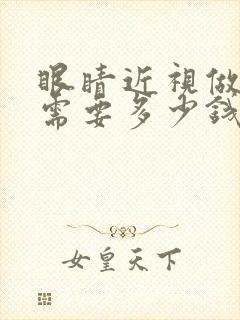 眼睛近視做
需要多少錢
女皇天下